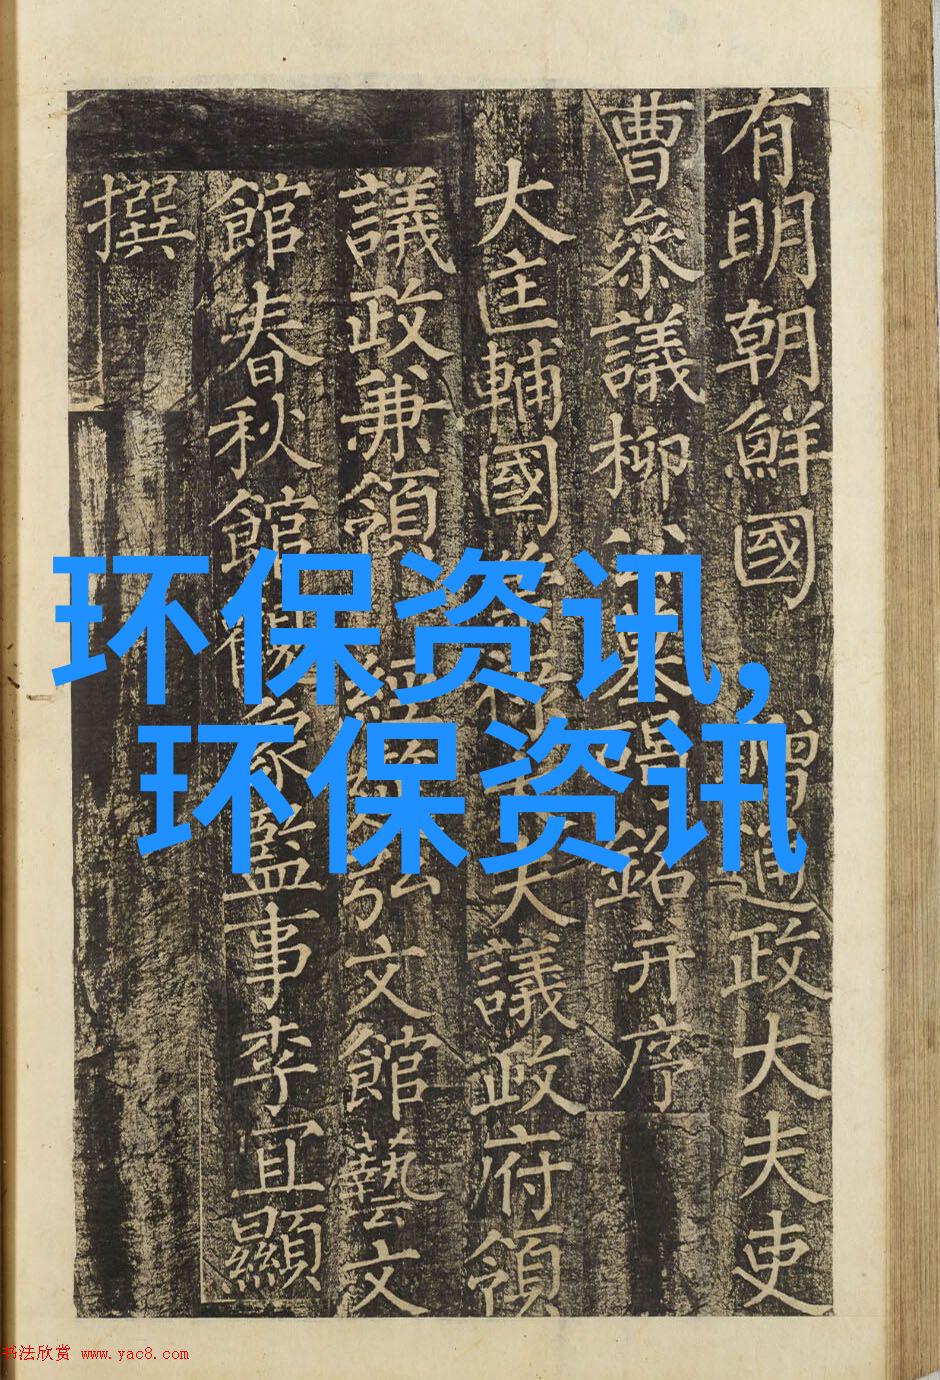 有明朝鮮國 贈通政大夫吏
曹參議柳公墓碣銘并序
大匡輔國 大夫議政府領
議政兼領經筵弘文館藝文
館春秋館觀象監事李宜顯
撰
环保资讯,
环保资讯
书法欣赏 www.yac8.com